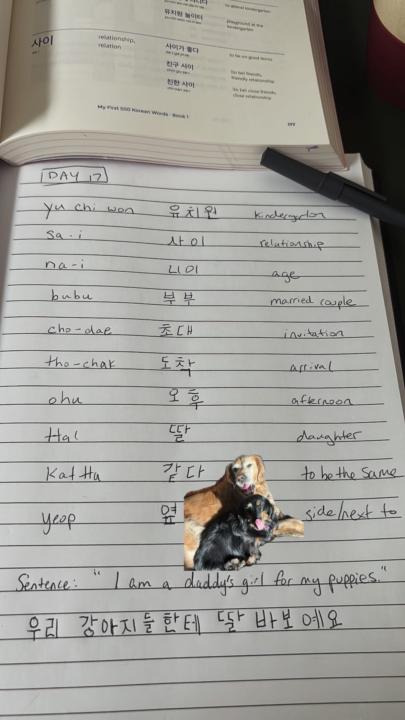 to attend kindergarten
유치원 놀이터
playground at the kindergarten
사이 relationship, relation
사이가 좋다 to be on good terms
친구 사이 (to be) friends, friendly relationship
친한 사이 (to be) close friends, close relationship
My First 500 Korean Words - Book 1
DAY 17
yu chi won 유치원 kindergarten
sa-i 사이 relationship
na-i 나이 age
bubu 부부 married couple
cho-dae 초대 invitation
tho-chak 도착 arrival
ohu 오후 afternoon
ttal 딸 daughter
Kat tta 같다 to be the same
yeop 옆 side/next to
Sentence: "I am a daddy's girl for my puppies."
우리 강아지들한테 딸 바보예요